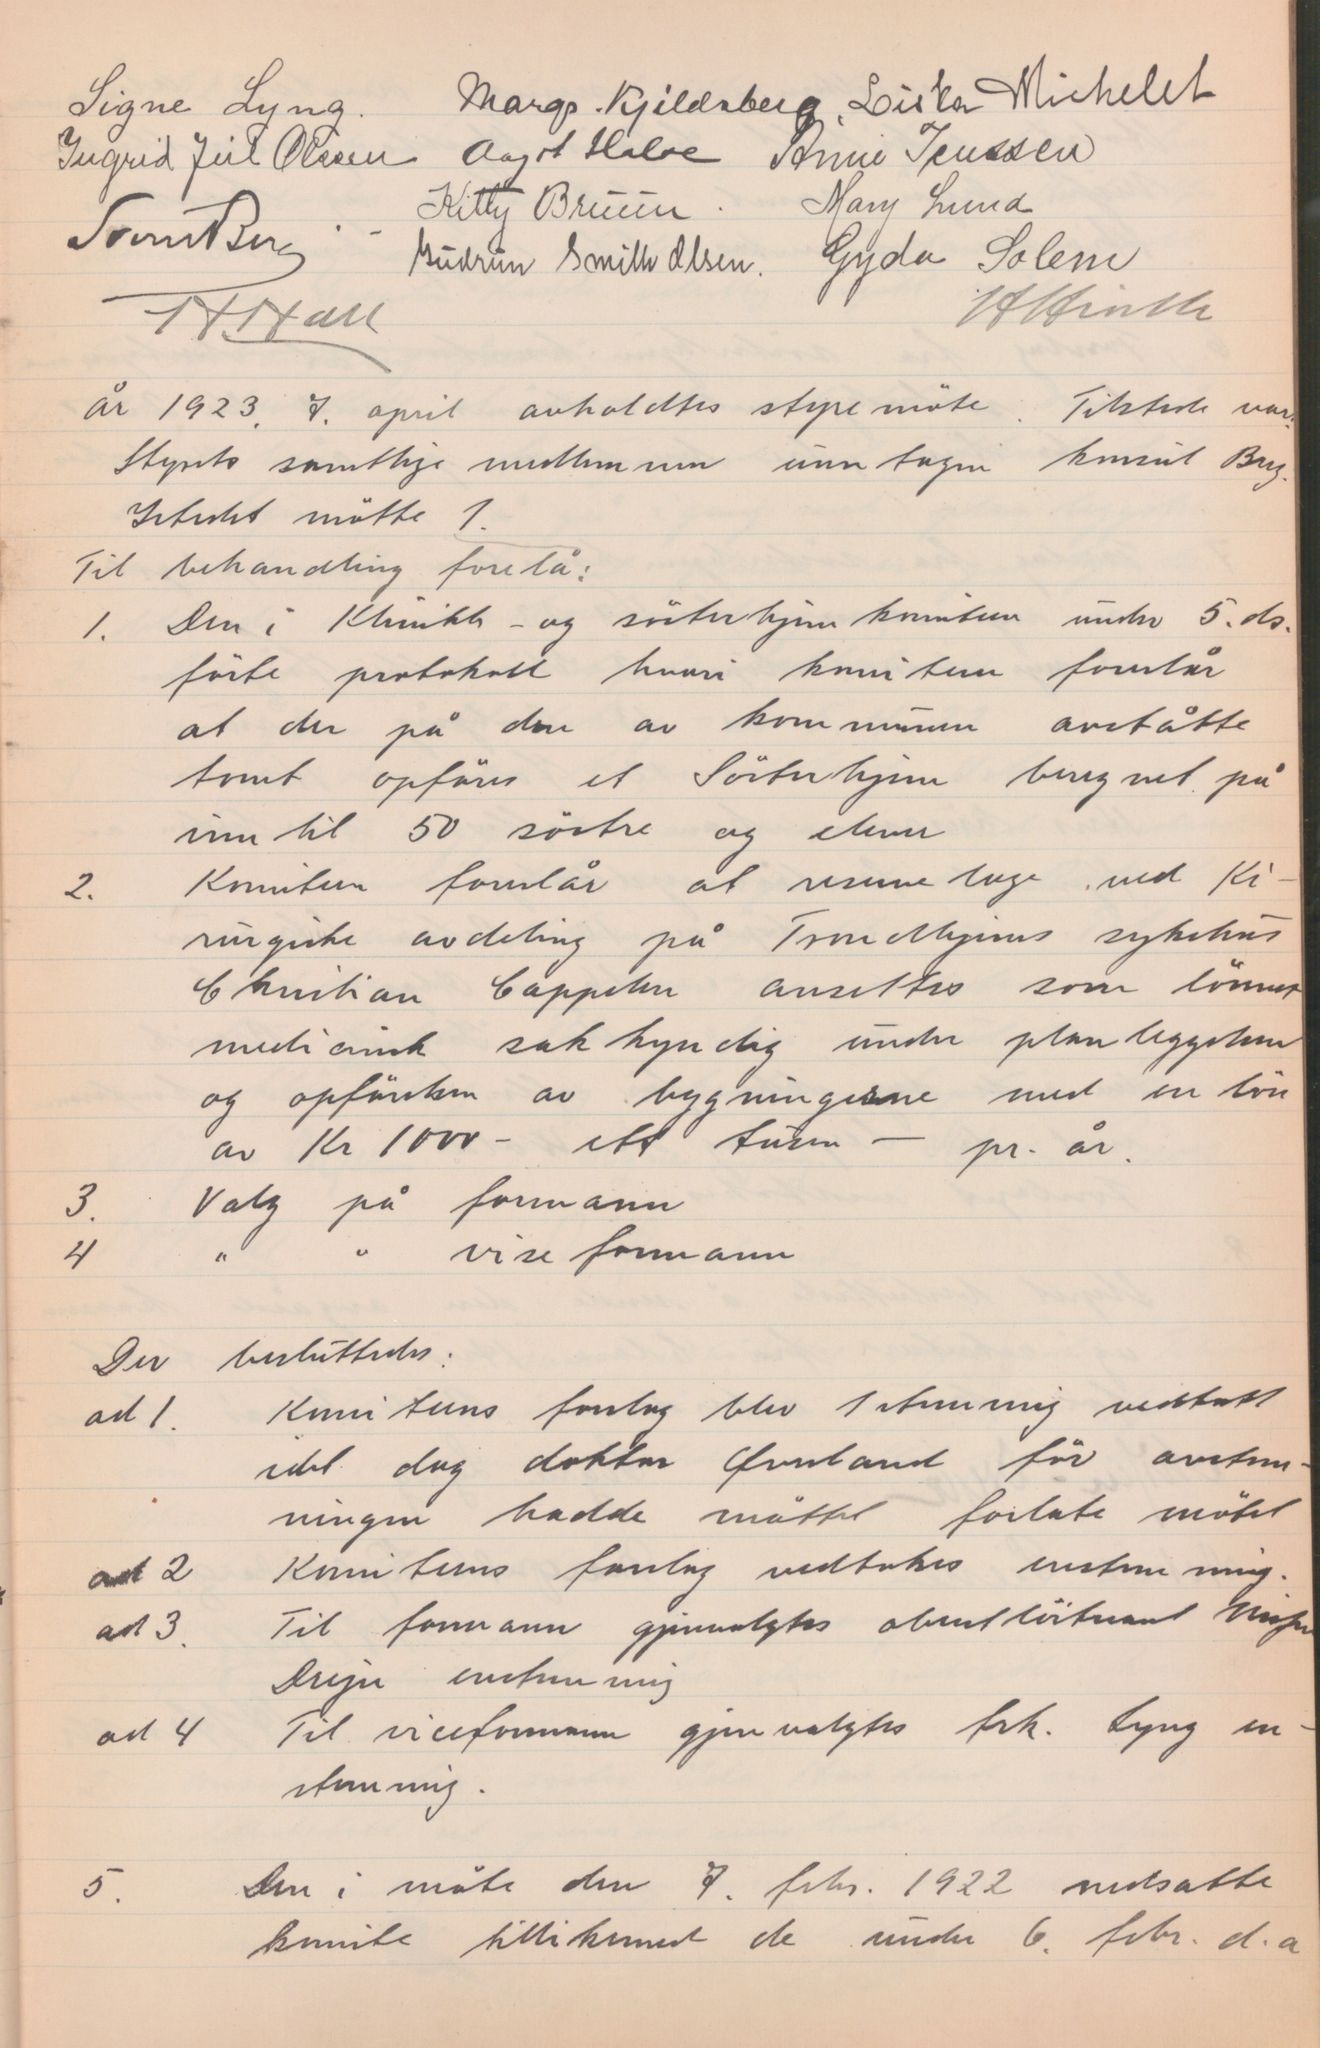 Signe Lyng. Margr. Kjeldsberg. Michelet
Ingrid Juel Olssen Aagot Halse Anne Jenssen
Kitty Bruun. Mary Lund
Sverre Berg Gudrun Smith Olsen. Gyda Solem
År 1923, 7. april avholdtes styremöte. Tilstede var:
Styrets samtlige medlemmer unntagen konsul Berg.
Istedet mötte 1.
Til behandling forelå:
1. Den i Klinikk- og sösterhjemkomiteen under 5. ds.
förte protokoll hvori komiteen foreslår
at der på den av kommunen avståtte
tomt opföres et Sösterhjem beregnet på
inntil 50 söstre og elever
2. Komiteen foreslår at reservelæge ved Ki-
rurgiske avdeling på Trondhjems sykehus
Christian Cappelen ansettes som lönnet
medicinsk sakkyndig under planleggelsen
og opförelsen av bygningerne med en lön
av Kr 1000- ett tusen - pr. år.
3. Valg på formann
4 " " viseformann
Der besluttedes:
ad 1. Komiteens forslag blev enstemmig vedtatt
idet dog doktor Överland för avstem-
ningen hadde måttet forlate mötet
ad 2 Komiteens forslag vedtokes enstemmig.
ad 3. Til formann gjenvalgtes oberstlöitnant
Dreyer enstemmig
ad 4 Til viceformann gjenvalgtes frk. Lyng en-
stemmig.
5. Den i möte den 7. febr. 1922 nedsatte
komite tillikemed de under 6. febr. d.a